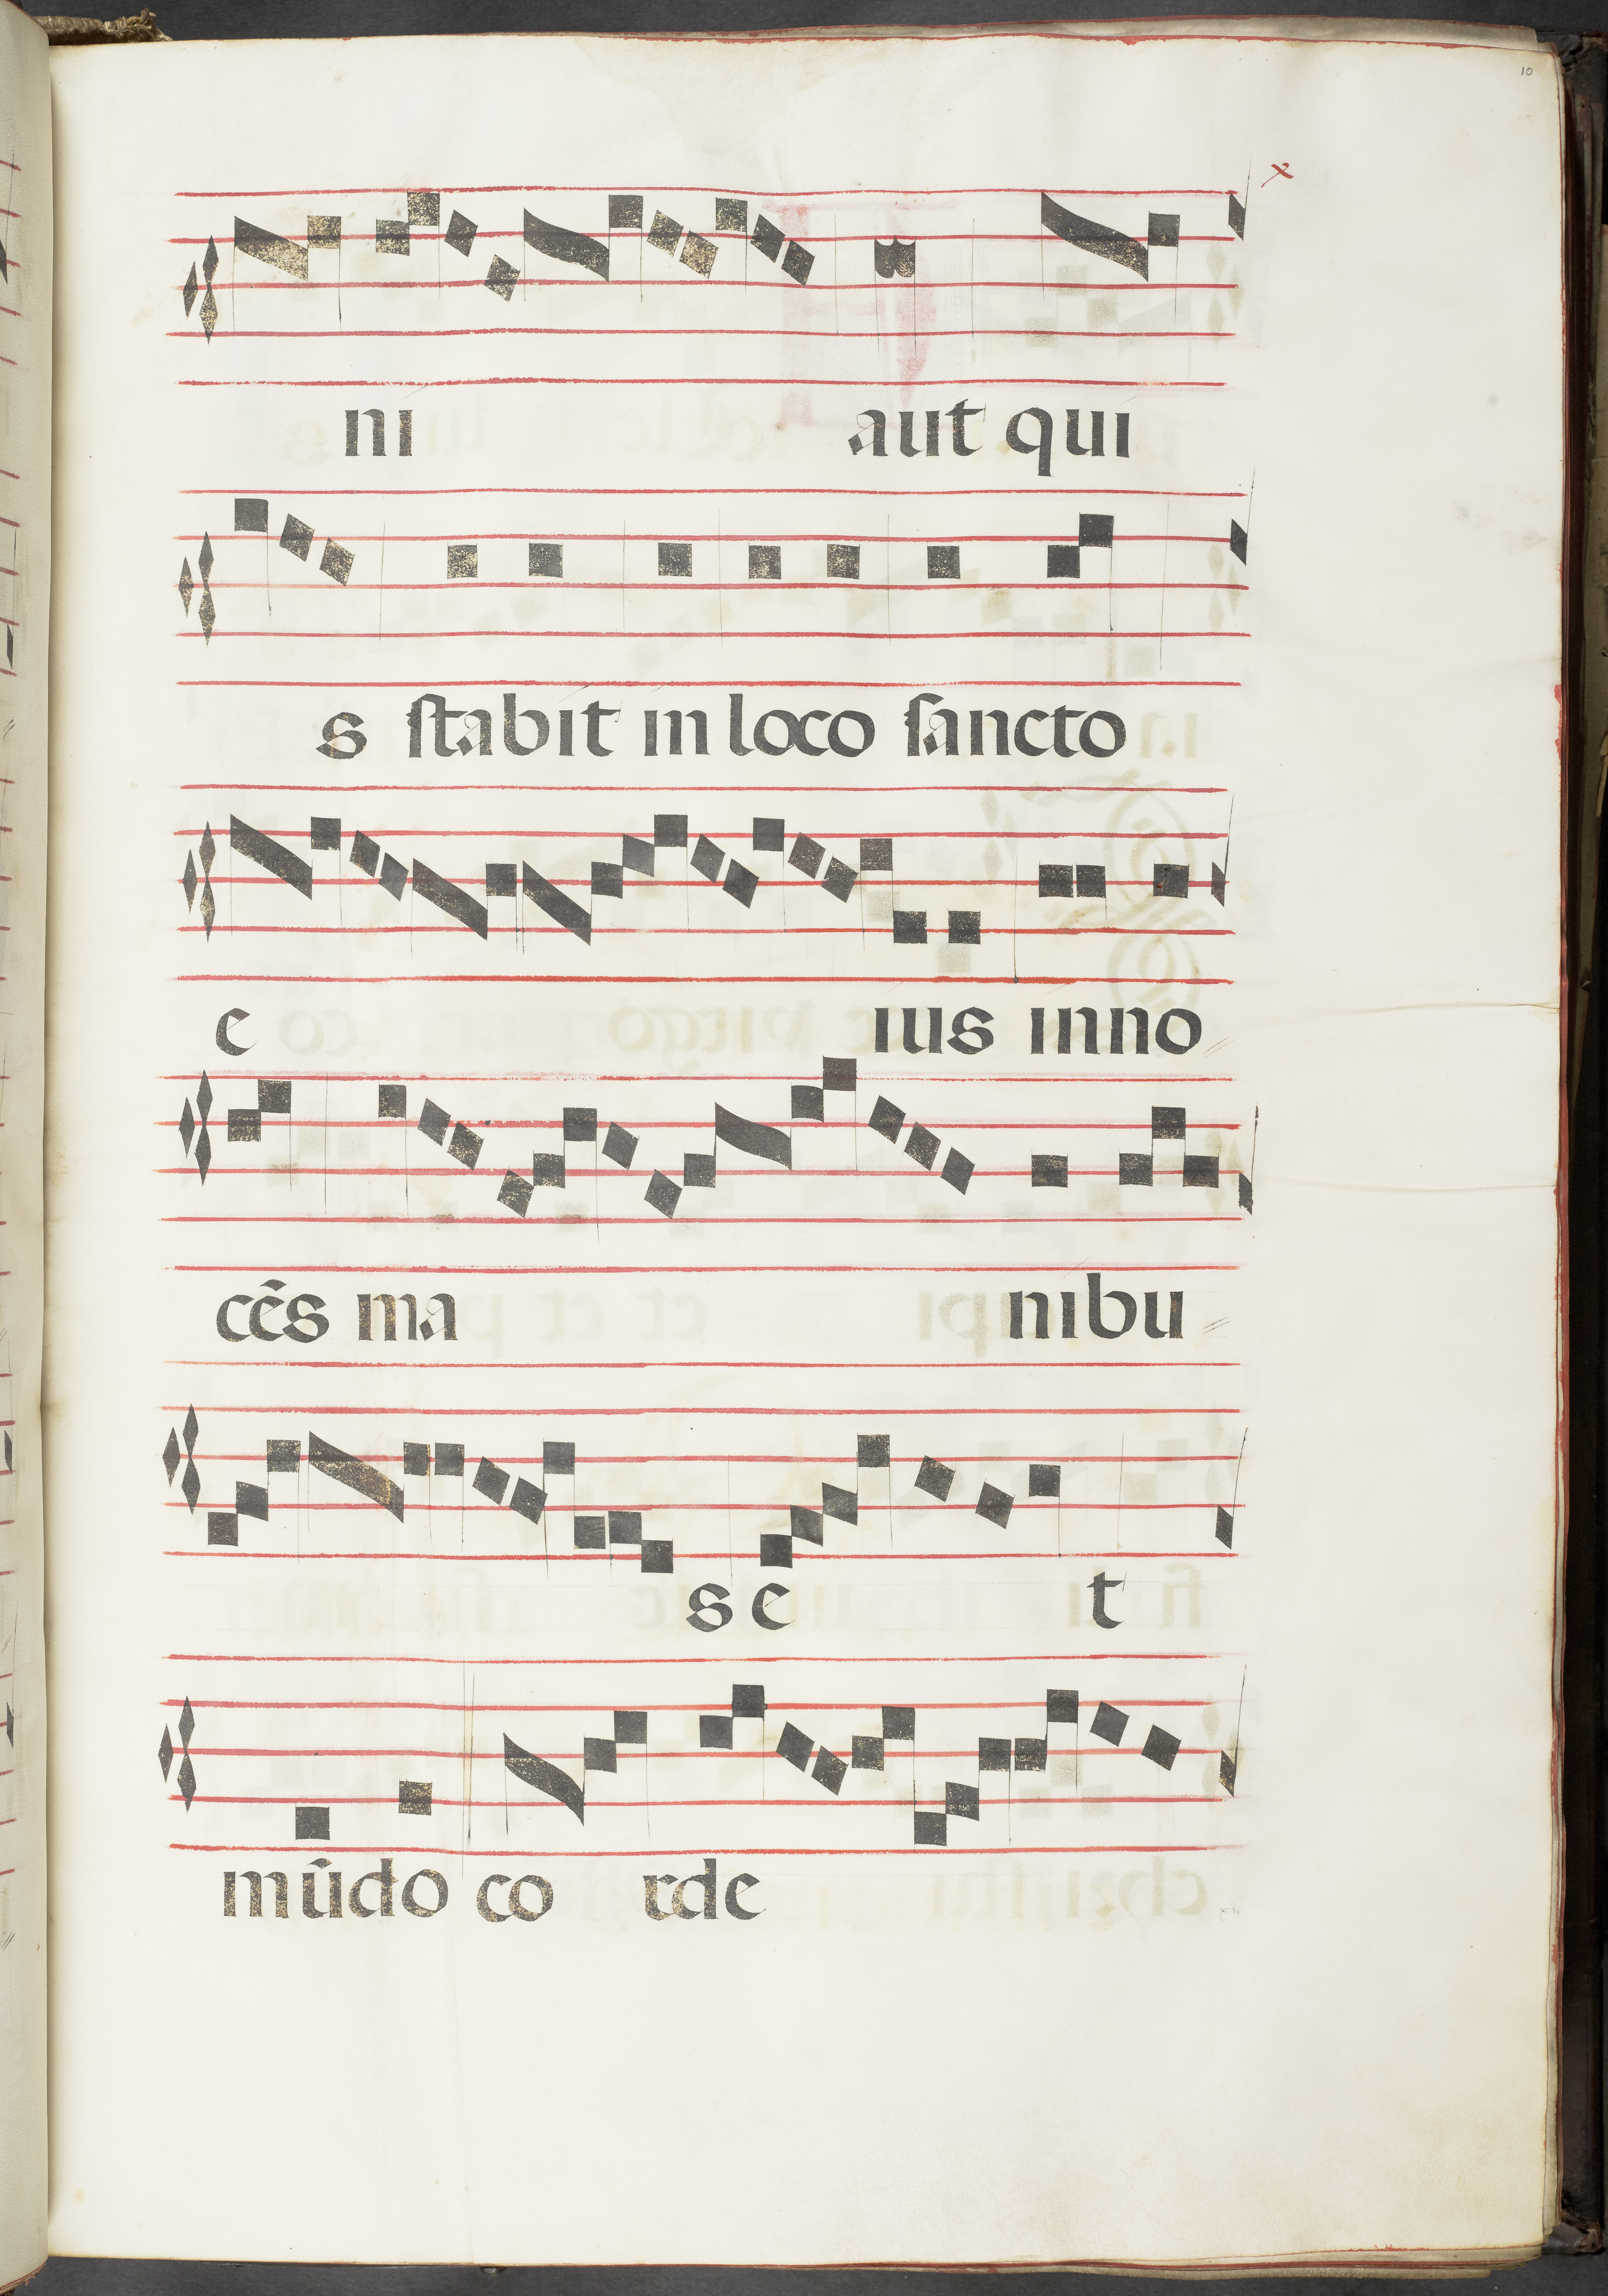 10
x
ni aut qui
s ſtabit in loco ſancto
e ius inno
cẽs ma nibu
s e t
mũdo co rde